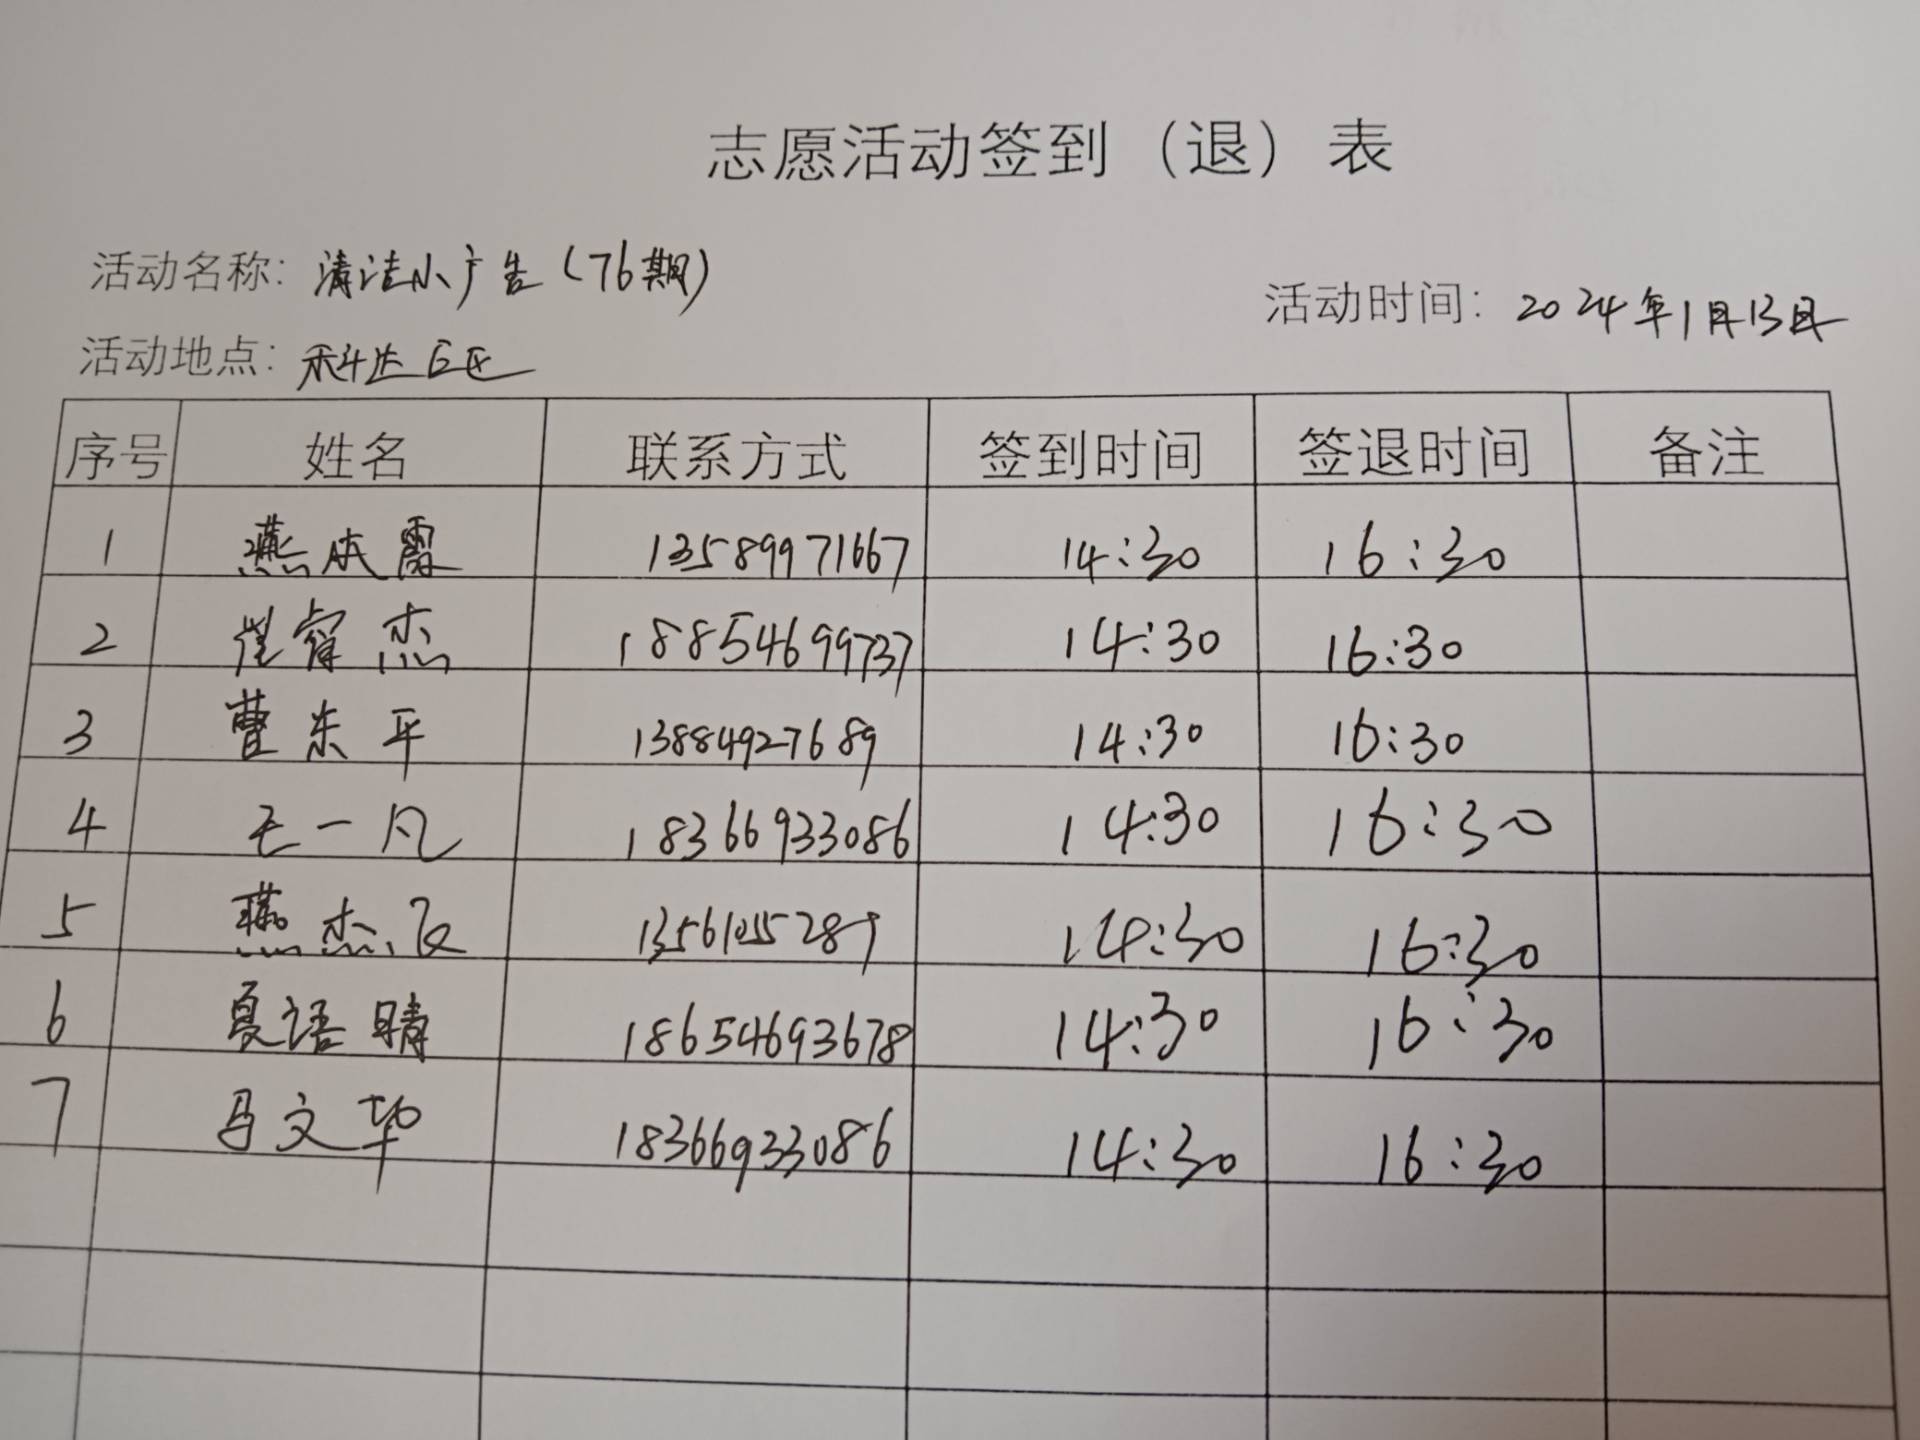 志愿活动签到（退）表
活动名称：清洁小广告（76期）
活动时间：2024年1月13日
活动地点：科达E区
序号 姓名 联系方式 签到时间 签退时间 备注
1 燕 13589971667 14:30 16:30
2 崔睿杰 18854699737 14:30 16:30
3 曹东平 13884927689 14:30 16:30
4 王一凡 18366933086 14:30 16:30
5 燕杰 14:30 16:30
6 夏语晴 18654693678 14:30 16:30
7 马文华 18366933086 14:30 16:30